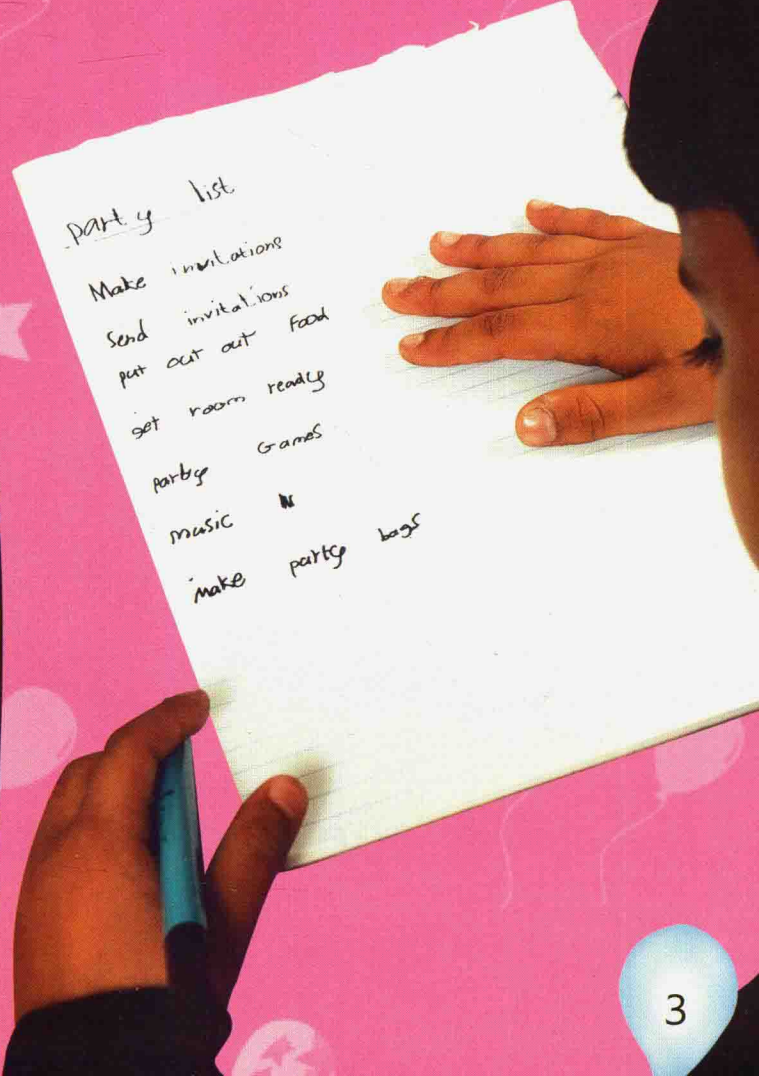 party list
Make invitations
Send invitations
put out out food
get room ready
party Games
music
make party bags
3